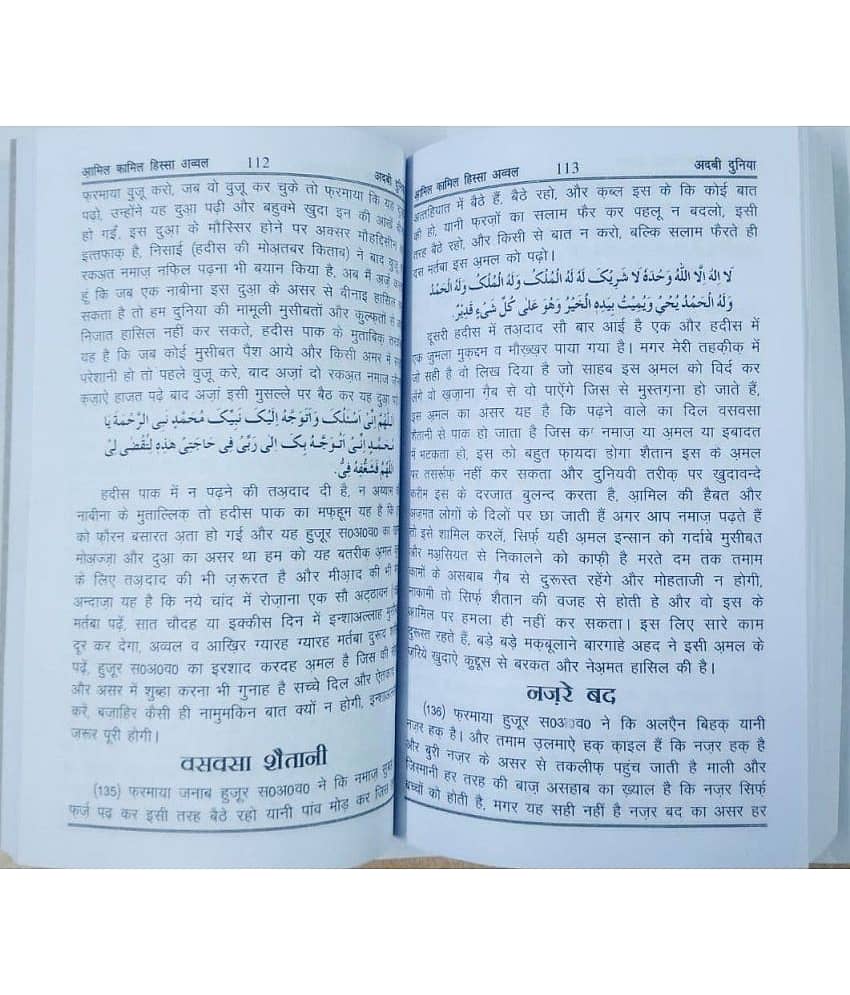 आमिल कामिल हिस्सा अव्वल 112 अदबी
फ़रमाया वुजू करो, जब वो वुजू कर चुके तो फ़रमाया कि यह
पढ़ो, उन्होंने यह दुआ पढ़ी और बहुक्मे खुदा इन की आखें
हो गईं, इस दुआ के मौस्सिर होने पर अक्सर मौहद्दिसीन
इत्तफ़ाक़ है, निसाई (हदीस की मोअ़तबर किताब) ने बाद वुजू
रकअ़त नमाज़ नफ़िल पढ़ना भी बयान किया है, अब मैं अर्ज़
हूं कि जब एक नाबीना इस दुआ के असर से बीनाई हासिल
सकता है तो हम दुनिया की मामूली मुसीबतों और कुल्फ़तों से
निजात हासिल नहीं कर सकते, हदीस पाक के मुताबिक़
यह है कि जब कोई मुसीबत पैश आये और किसी अमर में
परेशानी हो तो पहले वुजू करे, बाद अज़ां दो रकअ़त नमाज़
क़ज़ाऐ हाजत पढ़े बाद अज़ां इसी मुसल्ले पर बैठ कर यह दुआ
اَللّٰهُمَّ اِنِّیْ اَسْئَلُکَ وَاَتَوَجَّهُ اِلَیْکَ نَبِیِّکَ مُحَمَّدٍ نَبِی الرَّحْمَةِ یَا
اِنِّیْ اَتَوَجَّهُ بِکَ اِلٰی رَبِّیْ فِی حَاجَتِیْ هٰذِهٖ لِتُقْضٰی لِیْ
اَللّٰهُمَّ فَشَفِّعْهُ فِیَّ.
हदीस पाक में न पढ़ने की तअ़दाद दी है, न
नाबीना के मुताल्लिक़ तो हदीस पाक का मफ़हूम यह है कि
को फ़ौरन बसारत अता हो गई और यह हुजूर स0अ0व0 का
मोअज्ज़ा और दुआ का असर था हम को यह बतरीक़ अ़मल
के लिए तअ़दाद की भी ज़रूरत है और मीआद की भी
अन्दाज़ा यह है कि नये चांद में रोज़ाना एक सौ अट्ठावन
मर्तबा पढ़ें, सात चौदह या इक्कीस दिन में इन्शाअल्लाह
दूर कर देगा, अव्वल व आख़िर ग्यारह ग्यारह मर्तबा दुरूद
पढ़ें, हुजूर स0अ0व0 का इरशाद करदह अ़मल है जिस की
और असर में शुब्हा करना भी गुनाह है सच्चे दिल और
करें, बज़ाहिर कैसी ही नामुमकिन बात क्यों न होगी,
जरूर पूरी होगी।
वसवसा शैतानी
(135) फ़रमाया जनाब हुजूर स0अ0व0 ने कि नमाज़
फ़र्ज़ पढ़ कर इसी तरह बैठे रहो यानी पांव मोड़ कर जिस
आमिल कामिल हिस्सा अव्वल 113 अदबी दुनिया
अत्तहियात में बैठे हैं, बैठे रहो, और कब्ल इस के कि कोई बात
की हो, यानी फ़रजों का सलाम फैर कर पहलू न बदलो, इसी
तरह बैठे रहो, और किसी से बात न करो, बल्कि सलाम फैरते ही
दस मर्तबा इस अ़मल को पढ़ो।
لَا اِلٰهَ اِلَّا اللّٰهُ وَحْدَهٗ لَا شَرِیْکَ لَهٗ لَهُ الْمُلْکُ وَلَهُ الْمُلْکُ وَلَهُ الْحَمْدُ
وَلَهُ الْحَمْدُ یُحْیِیْ وَیُمِیْتُ بِیَدِهِ الْخَیْرُ وَهُوَ عَلٰی کُلِّ شَیْءٍ قَدِیْرٌ.
दूसरी हदीस में तअ़दाद सौ बार आई है एक और हदीस में
एक जुमला मुक़द्दम व मौख्ख़र पाया गया है। मगर मेरी तहक़ीक़ में
जो सही है वो लिख दिया है जो साहब इस अ़मल को विर्द कर
लेंगे वो ख़ज़ाना ग़ैब से वो पाऐंगे जिस से मुस्तग़ना हो जाते हैं,
इस अ़मल का असर यह है कि पढ़ने वाले का दिल वसवसा
शैतानी से पाक हो जाता है जिस का नमाज़ या अ़मल या इबादत
में भटकता हो, इस को बहुत फ़ायदा होगा शैतान इस के अ़मल
पर तसर्रूफ़ नहीं कर सकता और दुनियवी तरीक़ पर खुदावन्दे
करीम इस के दरजात बुलन्द करता है, आ़मिल की हैबत और
अज़मत लोगों के दिलों पर छा जाती हैं अगर आप नमाज़ पढ़ते हैं
तो इसे शामिल करलें, सिर्फ़ यही अ़मल इन्सान को गर्दाबे मुसीबत
और मअ़सियत से निकालने को काफ़ी है मरते दम तक तमाम
कामों के असबाब ग़ैब से दुरूस्त रहेंगे और मोहताजी न होगी,
नाकामी तो सिर्फ़ शैतान की वजह से होती हे और वो इस के
आ़मिल पर हमला ही नहीं कर सकता। इस लिए सारे काम
दुरूस्त रहते हैं, बड़े बड़े मक़्बूलाने बारगाहे अहद ने इसी अ़मल के
ज़रिये खुदाऐ कुद्दूस से बरकत और नेअ़मत हासिल की है।
नज़रे बद
(136) फ़रमाया हुजूर स0अ0व0 ने कि अलऐन बिहक़ यानी
नज़र हक़ है। और तमाम उ़लमाऐ हक़ क़ाइल हैं कि नज़र हक़ है
और बुरी नज़र के असर से तकलीफ़ पहुंच जाती है माली और
जिस्मानी हर तरह की बाज़ असहाब का ख़्याल है कि नज़र सिर्फ़
बच्चों को होती है, मगर यह सही नहीं है नज़र बद का असर हर